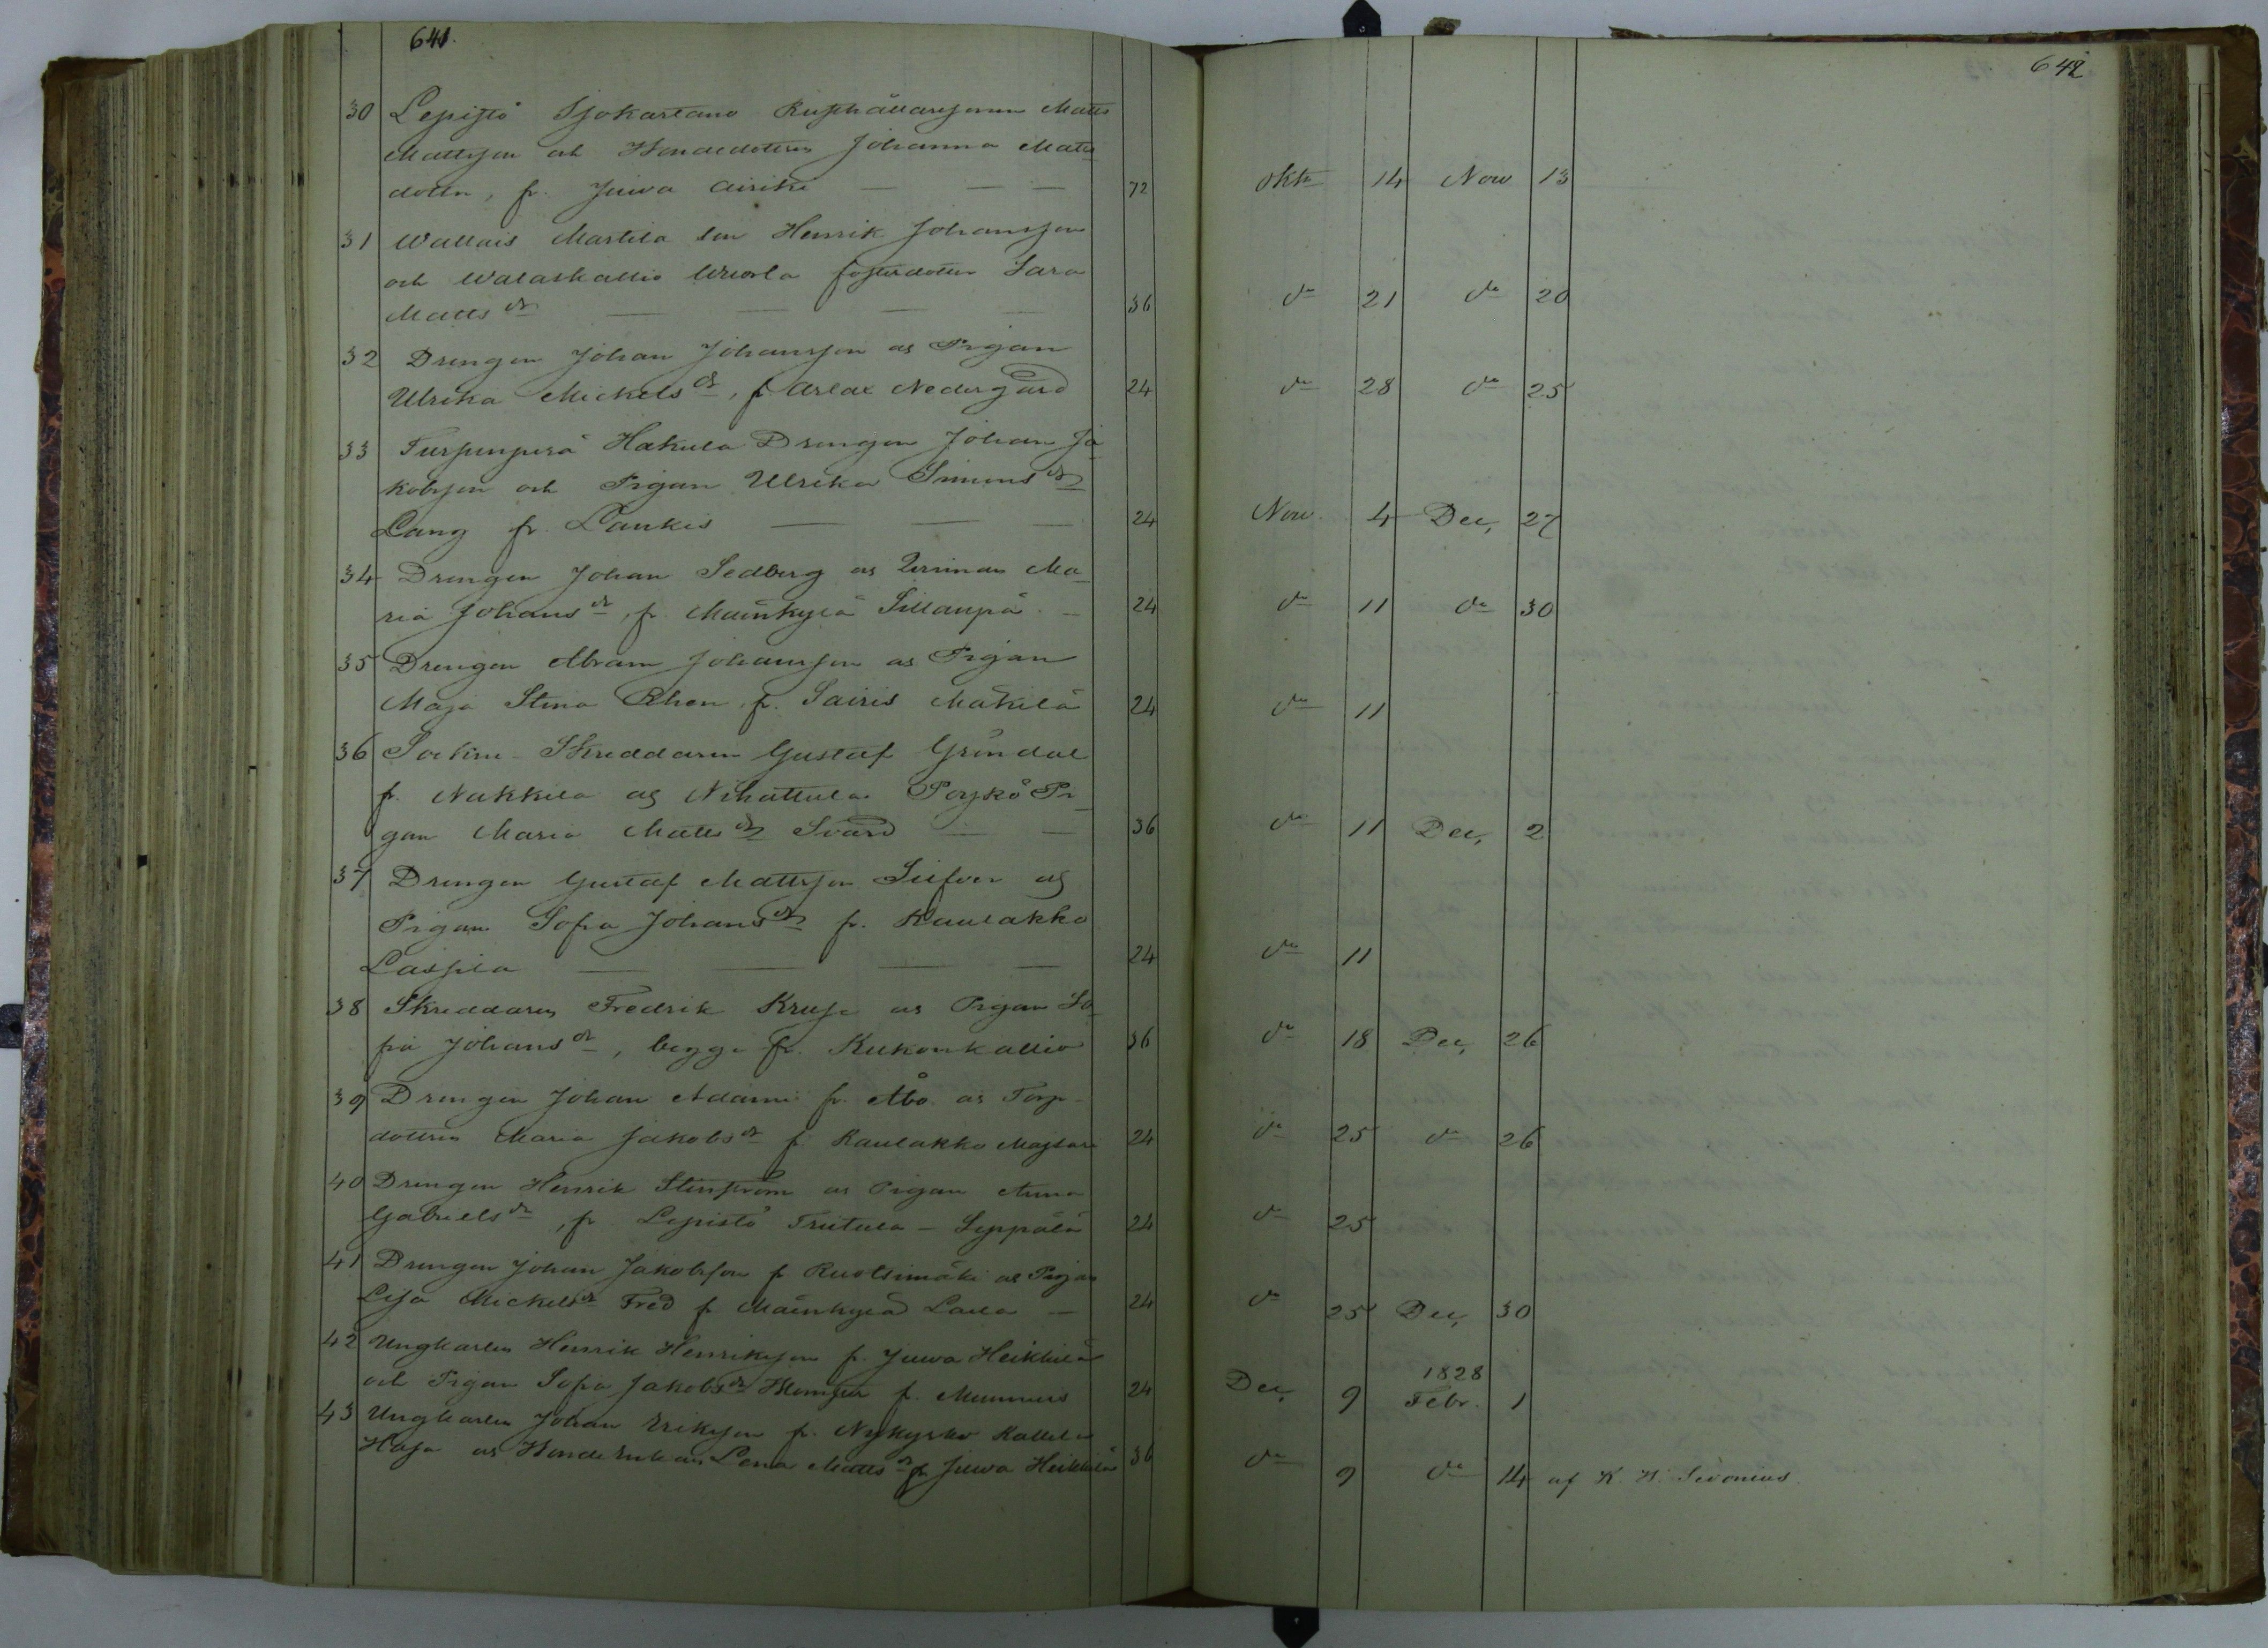 641.
642
30 Lepistö Sjokartano Rusthållaresonen Matts
Mattsson och Bondedottren Johanna Matts
dotter, fr. Juwa Airiki — — 72 Oktr 14 Now 13
31 Wallais Martila son Henrik Johansson
och Walaskallio Uwola fosterdotter Sara
Matts dr — — — — 36 do 21 do 20
32 Drengen Johan Johansson og Pigan
Ulrika Mickels dr, fr Arlax Nedergård 24 do 28 do 25
33 Turpunperä Hakula Drengen Johan Ja
kobsson och Pigan Ulrika Simons dr
Lang fr. Laukis — — — 24 Now. 4 Dec, 27
34 Drengen Johan Sedberg og Qvinnan Ma
ria Johans dr, fr. Mainkylä Sillanpä — 24 do 11 do 30
35 Drengen Abram Johansson og Pigan
Maja Stina Rhen fr. Sairis Mäkilä 24 do 11
36 Sockne-Skreddaren Gustaf Gröndal
fr. Nakkila og Nihattula Poykö Pi
gan Maria Matts dr Svärd — — 36 do 11 Dec, 2
37 Drengen Gustaf Mattsson Silfver og
Pigan Sofia Johans dr fr. Raulakko
Laspila — — — — 24 do 11
38 Skreddaren Fredrik Kruse og Pigan So
fia Johans dr, begge fr. Kukonkallio 36 do 18 Dec, 26
39 Drengen Johan Adami fr. Åbo og Torp-
dottren Maria Jakobs dr fr. Raulakko 24 do 25 do 26
40 Drengen Henrik Stenström og Pigan Anna
Gabriels dr, fr. Lepistö Triitula - Seppälä 24 do 25
41 Drengen Johan Jakobsson fr Ruotsimäki og Pigan
Lisa Mickels dr Fred fr Mainkylä Laila — 24 do 25 Dec, 30
42 Ungkarlen Henrik Henriksson fr. Juwa Heikkilä
1828
och Pigan Sofia Jakobs dr fr. Mummis 24 Dec, 9 Febr. 1
43 Ungkarlen Johan Eriksson fr. Nykyrko Kallela
Haja og Bonde Enkan Lena Matts dr fr Juwa Heikkilä 36 do 9 do 14 af K. H. Sivonius.